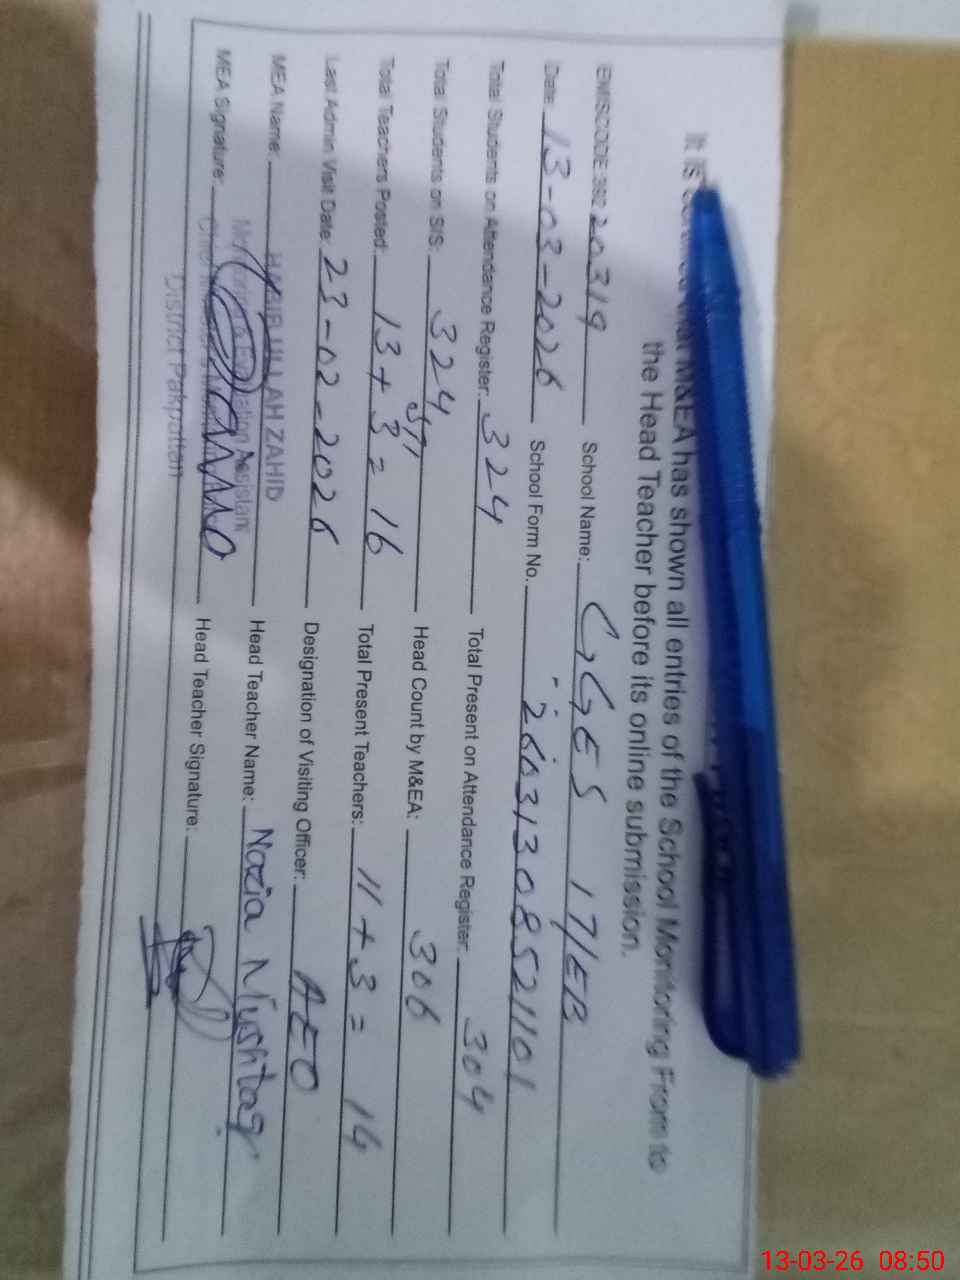 It is that M&EA has shown all entries of the School Monitoring From to
the Head Teacher before its online submission.
EMISCODE 392 20319 School Name: GGES 17/EB
Date 13-03-2026 School Form No. 26031308521101
Total Students on Attendance Register: 324 Total Present on Attendance Register: 304
Total Students on SIS: 324 Head Count by M&EA: 306
STI
Total Teachers Posted: 13+3= 16 Total Present Teachers: 11+3= 14
Last Admin Visit Date: 23-02-2026 Designation of Visiting Officer: AEO
MEA Name: ULLAH ZAHID Head Teacher Name: Nazia Mushtaq
Monitoring & Evaluation Assistant
MEA Signature: Head Teacher Signature:
District Pakpattan
13-03-26 08:50